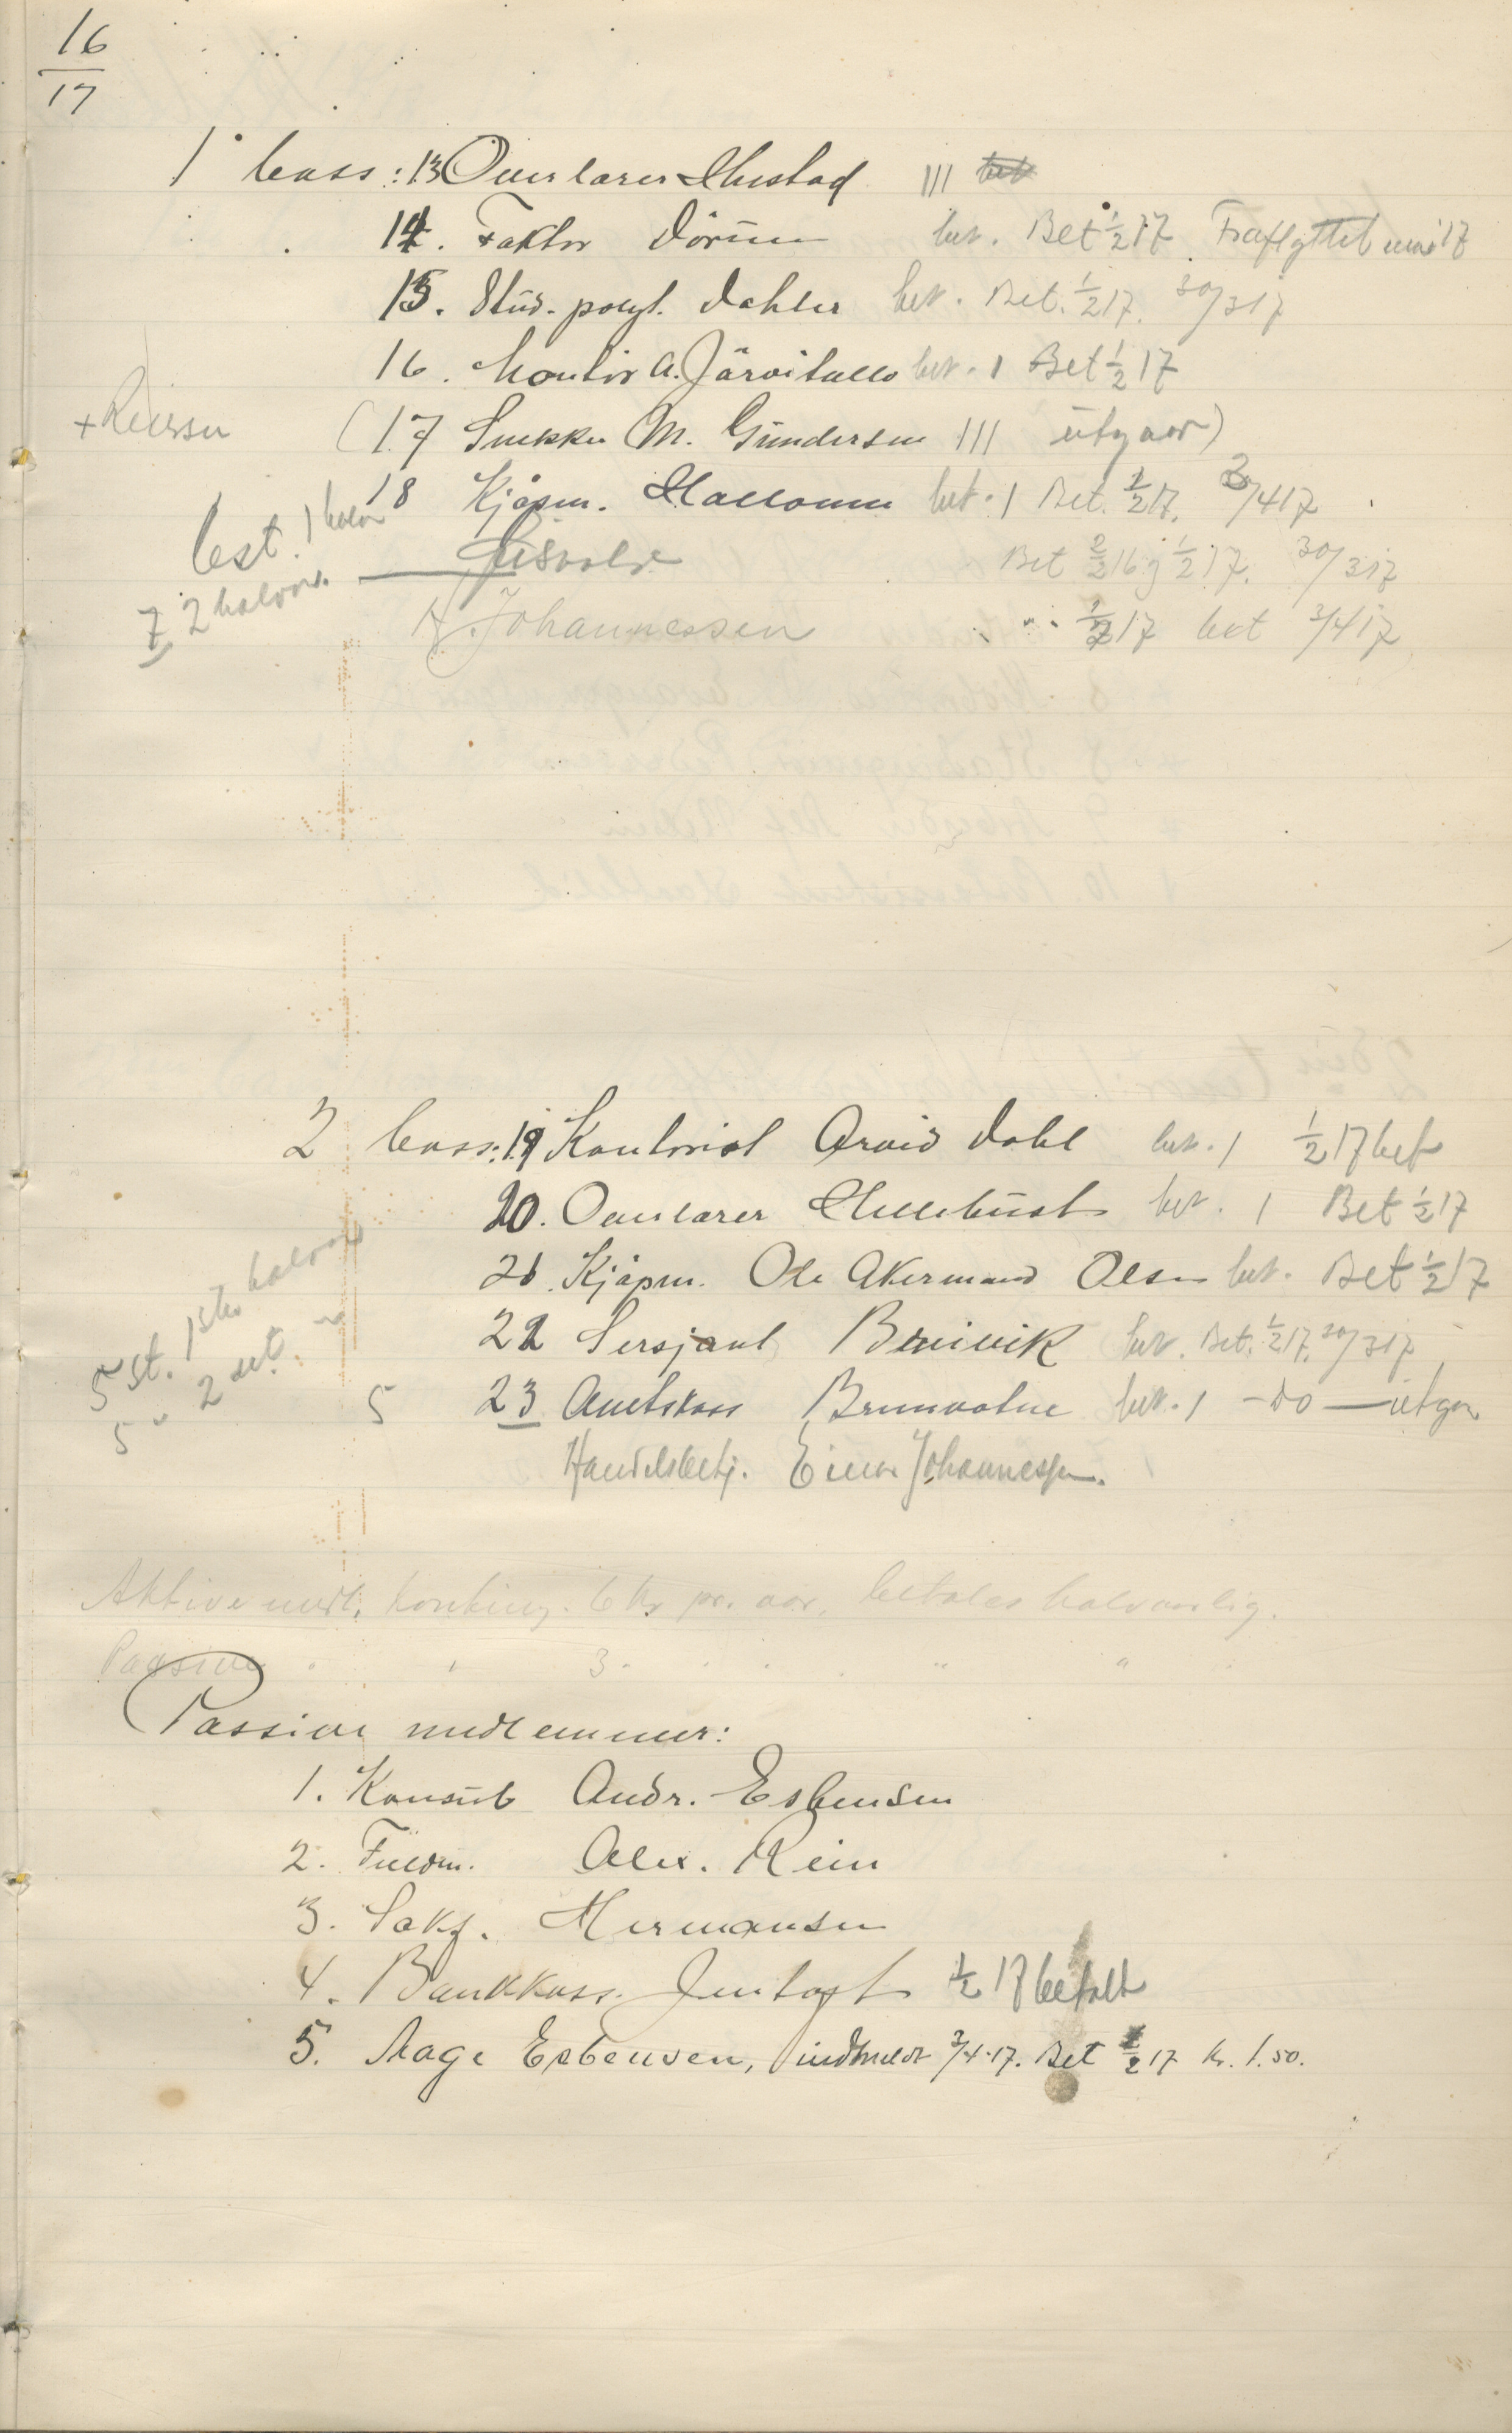 16
17
1 bass: 13 Overlærer Hustad III bet
14. Faktor Dörum bet. Bet 1/2 17 Fraflyttet mai 17
15. Stud. polyt. Dahler bet. Bet. 1/2 17. 30/3 17
16. Montör A. Järvitallo bet. 1 Bet 1/2 17
+ Reiersen
(17 Snekker M. Gundersen III utgaar)
18 Kjöpm. Hallonen bet. 1 Bet. 1/2 17. 3/4 17
6 st. 1 halv
7 2 halvaar.
Bet 2/2 16 j 1/2 17. 30/3 17
Johannessen " " 1/2 17 bet 3/4 17
2 bass: 19 Kontorist Arvid Dahl bet. 1 1/2 17 bet
20. Overlærer Hellebust bet. 1 Bet 1/2 17
21 Kjöpm. Ole Akermand Olsen bet. Bet 1/2 17
22 Sersjant Breivik bet. Bet. 1/2 17. 30/3 17
5 st. 1ste halvaar
5 " 2det "
5 23 Amtskass Brunvatne bet. 1 - do - utgaar
Handelsbetj. Einar Johannessen.
Aktive medl. konting. 6 Kr pr. aar, betales halvaarlig.
Passive " " 3 " " " " "
Passive medlemmer:
1. Konsul Andr. Esbensen
2. Fuldm. Alex. Rein
3. Sakf. Hermansen
4. Bankkass. Jentoft 1/2 17 betalt
5. Aage Esbensen, indmeldt 3/4-17. Bet 1/2 17 Kr. 1.50.